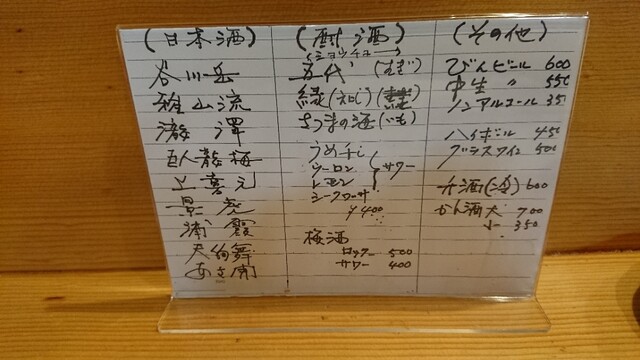 (日本酒)
谷川岳
雅山流
瀧澤
臥龍梅
上喜元
景虎
浦霞
天狗舞
あさ開
(酎酒)
ショウチュー
五代(むぎ)
縁
さつまの海(いも)
うめ干し
ウーロン
レモン
シークワーサー
サワー
¥400
梅酒
ロック 500
サワー 400
(その他)
びんビール 600
中生 〃 550
ノンアルコール 350
ハイボール 450
グラスワイン 500
升酒(冷) 600
かん酒大 700
小 350